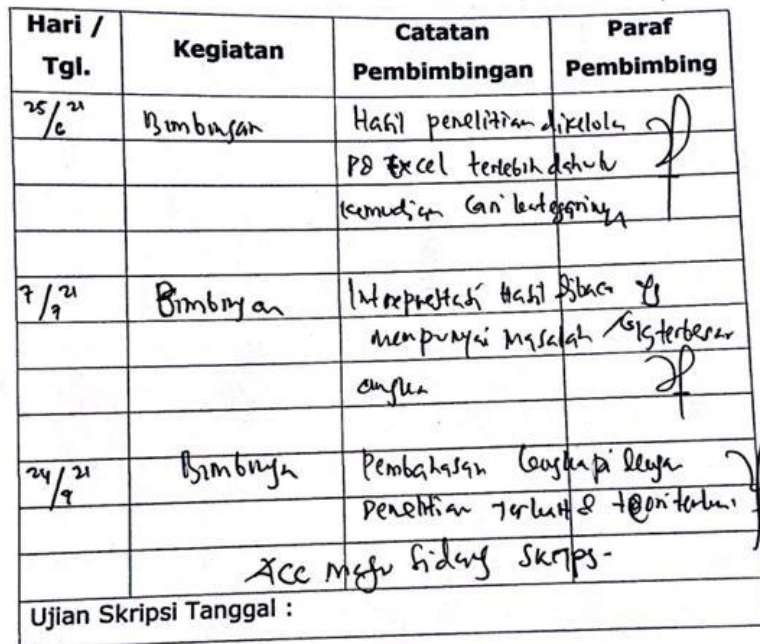 Hari / Tgl. Kegiatan Catatan Pembimbingan Paraf Pembimbing
25/6 21 Bimbingan Hasil penelitian dikelola
P8 Excel terlebih dahulu
kemudian cari kategorinya
7/7 21 Bimbingan Intreprestasi Hasil Dibaca yg
mempunyai masalah terbesar
angka
24/9 21 Bimbingan Pembahasan lengkapi dengan
Penelitian Terkait & teori terbaru
ACC Maju Sidang Skripsi
Ujian Skripsi Tanggal :